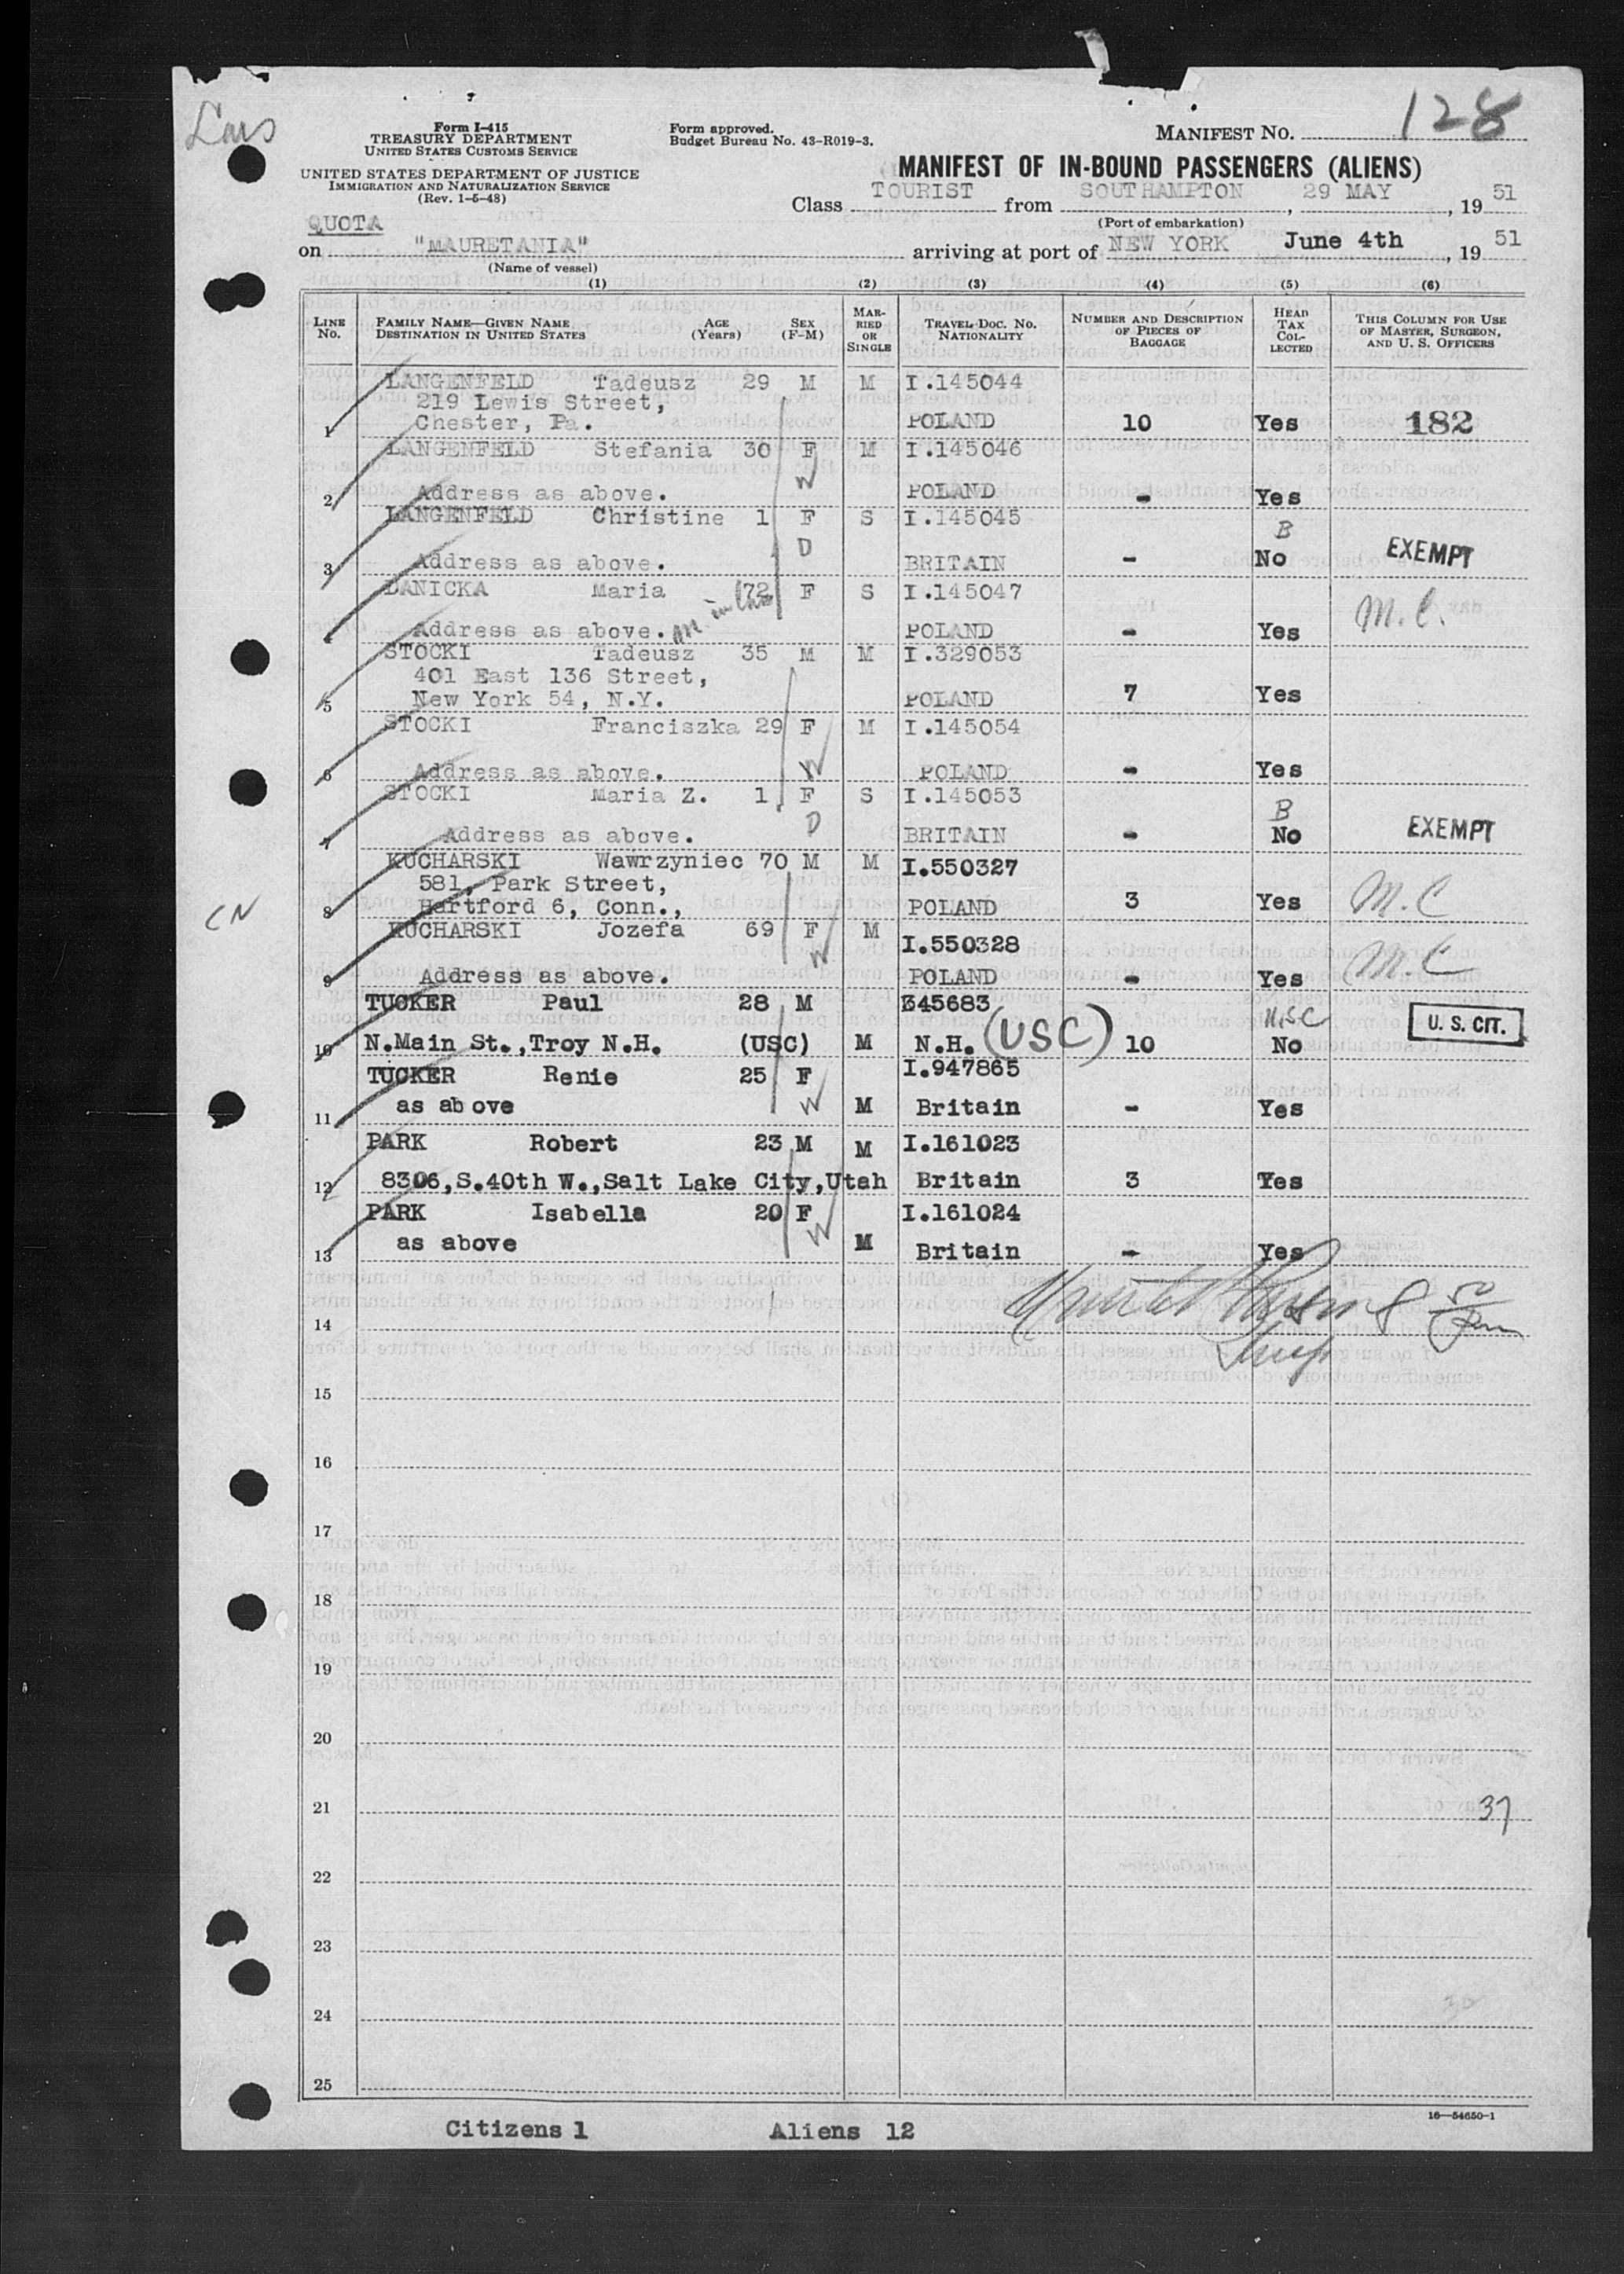 128
Form I-415
TREASURY DEPARTMENT
UNITED STATES CUSTOMS SERVICE
UNITED STATES DEPARTMENT OF JUSTICE
IMMIGRATION AND NATURALIZATION SERVICE
(Rev. 1-5-48)
Form approved.
Budget Bureau No. 43-R019-3.
MANIFEST NO.
MANIFEST OF IN-BOUND PASSENGERS (ALIENS)
Class TOURIST from SOUTHAMPTON, 29 MAY, 19 51
(Port of embarkation)
QUOTA
on "MAURETANIA" arriving at port of NEW YORK June 4th, 19 51
(Name of vessel)
(1) (2) (3) (4) (5) (6)
LINE No. FAMILY NAME—GIVEN NAME DESTINATION IN UNITED STATES AGE (Years) SEX (F-M) MARRIED OR SINGLE TRAVEL DOC. NO. NATIONALITY NUMBER AND DESCRIPTION OF PIECES OF BAGGAGE HEAD TAX COLLECTED THIS COLUMN FOR USE OF MASTER, SURGEON, AND U. S. OFFICERS
LANGENFELD Tadeusz 29 M M I.145044
219 Lewis Street,
1 Chester, Pa. POLAND 10 Yes 182
LANGENFELD Stefania 30 F M I.145046
W
2 Address as above. POLAND - Yes
LANGENFELD Christine 1 F S I.145045
D B
3 Address as above. BRITAIN - No EXEMPT
DANICKA Maria 72 F S I.145047
M.C.
4 Address as above. POLAND - Yes
STOCKI Tadeusz 35 M M I.329053
401 East 136 Street,
5 New York 54, N.Y. POLAND 7 Yes
STOCKI Franciszka 29 F M I.145054
W
6 Address as above. POLAND - Yes
STOCKI Maria Z. 1 F S I.145053
D B
7 Address as above. BRITAIN - No EXEMPT
KUCHARSKI Wawrzyniec 70 M M I.550327
581, Park Street,
CN 8 Hartford 6, Conn., POLAND 3 Yes M.C
KUCHARSKI Jozefa 69 F M I.550328
W M.C
9 Address as above. POLAND - Yes
TUCKER Paul 28 M 345683
USC U. S. CIT.
10 N.Main St.,Troy N.H. (USC) M N.H. (USC) 10 No
TUCKER Renie 25 F I.947865
W
11 as above M Britain - Yes
PARK Robert 23 M M I.161023
12 8306,S.40th W.,Salt Lake City,Utah Britain 3 Yes
PARK Isabella 20 F I.161024
W
13 as above M Britain - Yes
14
15
16
17
18
19
20
21 37
22
23
24
25
16—54650-1
Citizens 1 Aliens 12